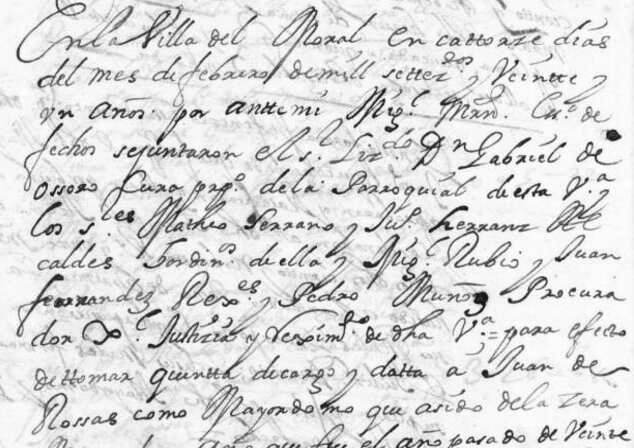 En la Villa del Moral en cattorze dias
del mes de febrero de mill settez.dos y Veintte y
un años por antte mi Mig.l Mrn. Esc.o de
fechos sejuntaron el s.r Liz.do Dn Gabriel de
Ossoro Cura prp.o dela Parroquial de esta V.a y
los s.res Matheo Serrano y Ju.o herranz Al
caldes hordin.os de ella y Mig.l Rubio y Juan
fernandez Rex.es y Pedro Muñoz Procura
dor Justizia y Rexim.to de dha V.a = para efecto
de ttomar quintta de cargo y datta a Juan de
Rossas como Mayordomo que asido dela zera
año que fue el año pasado de Veinte